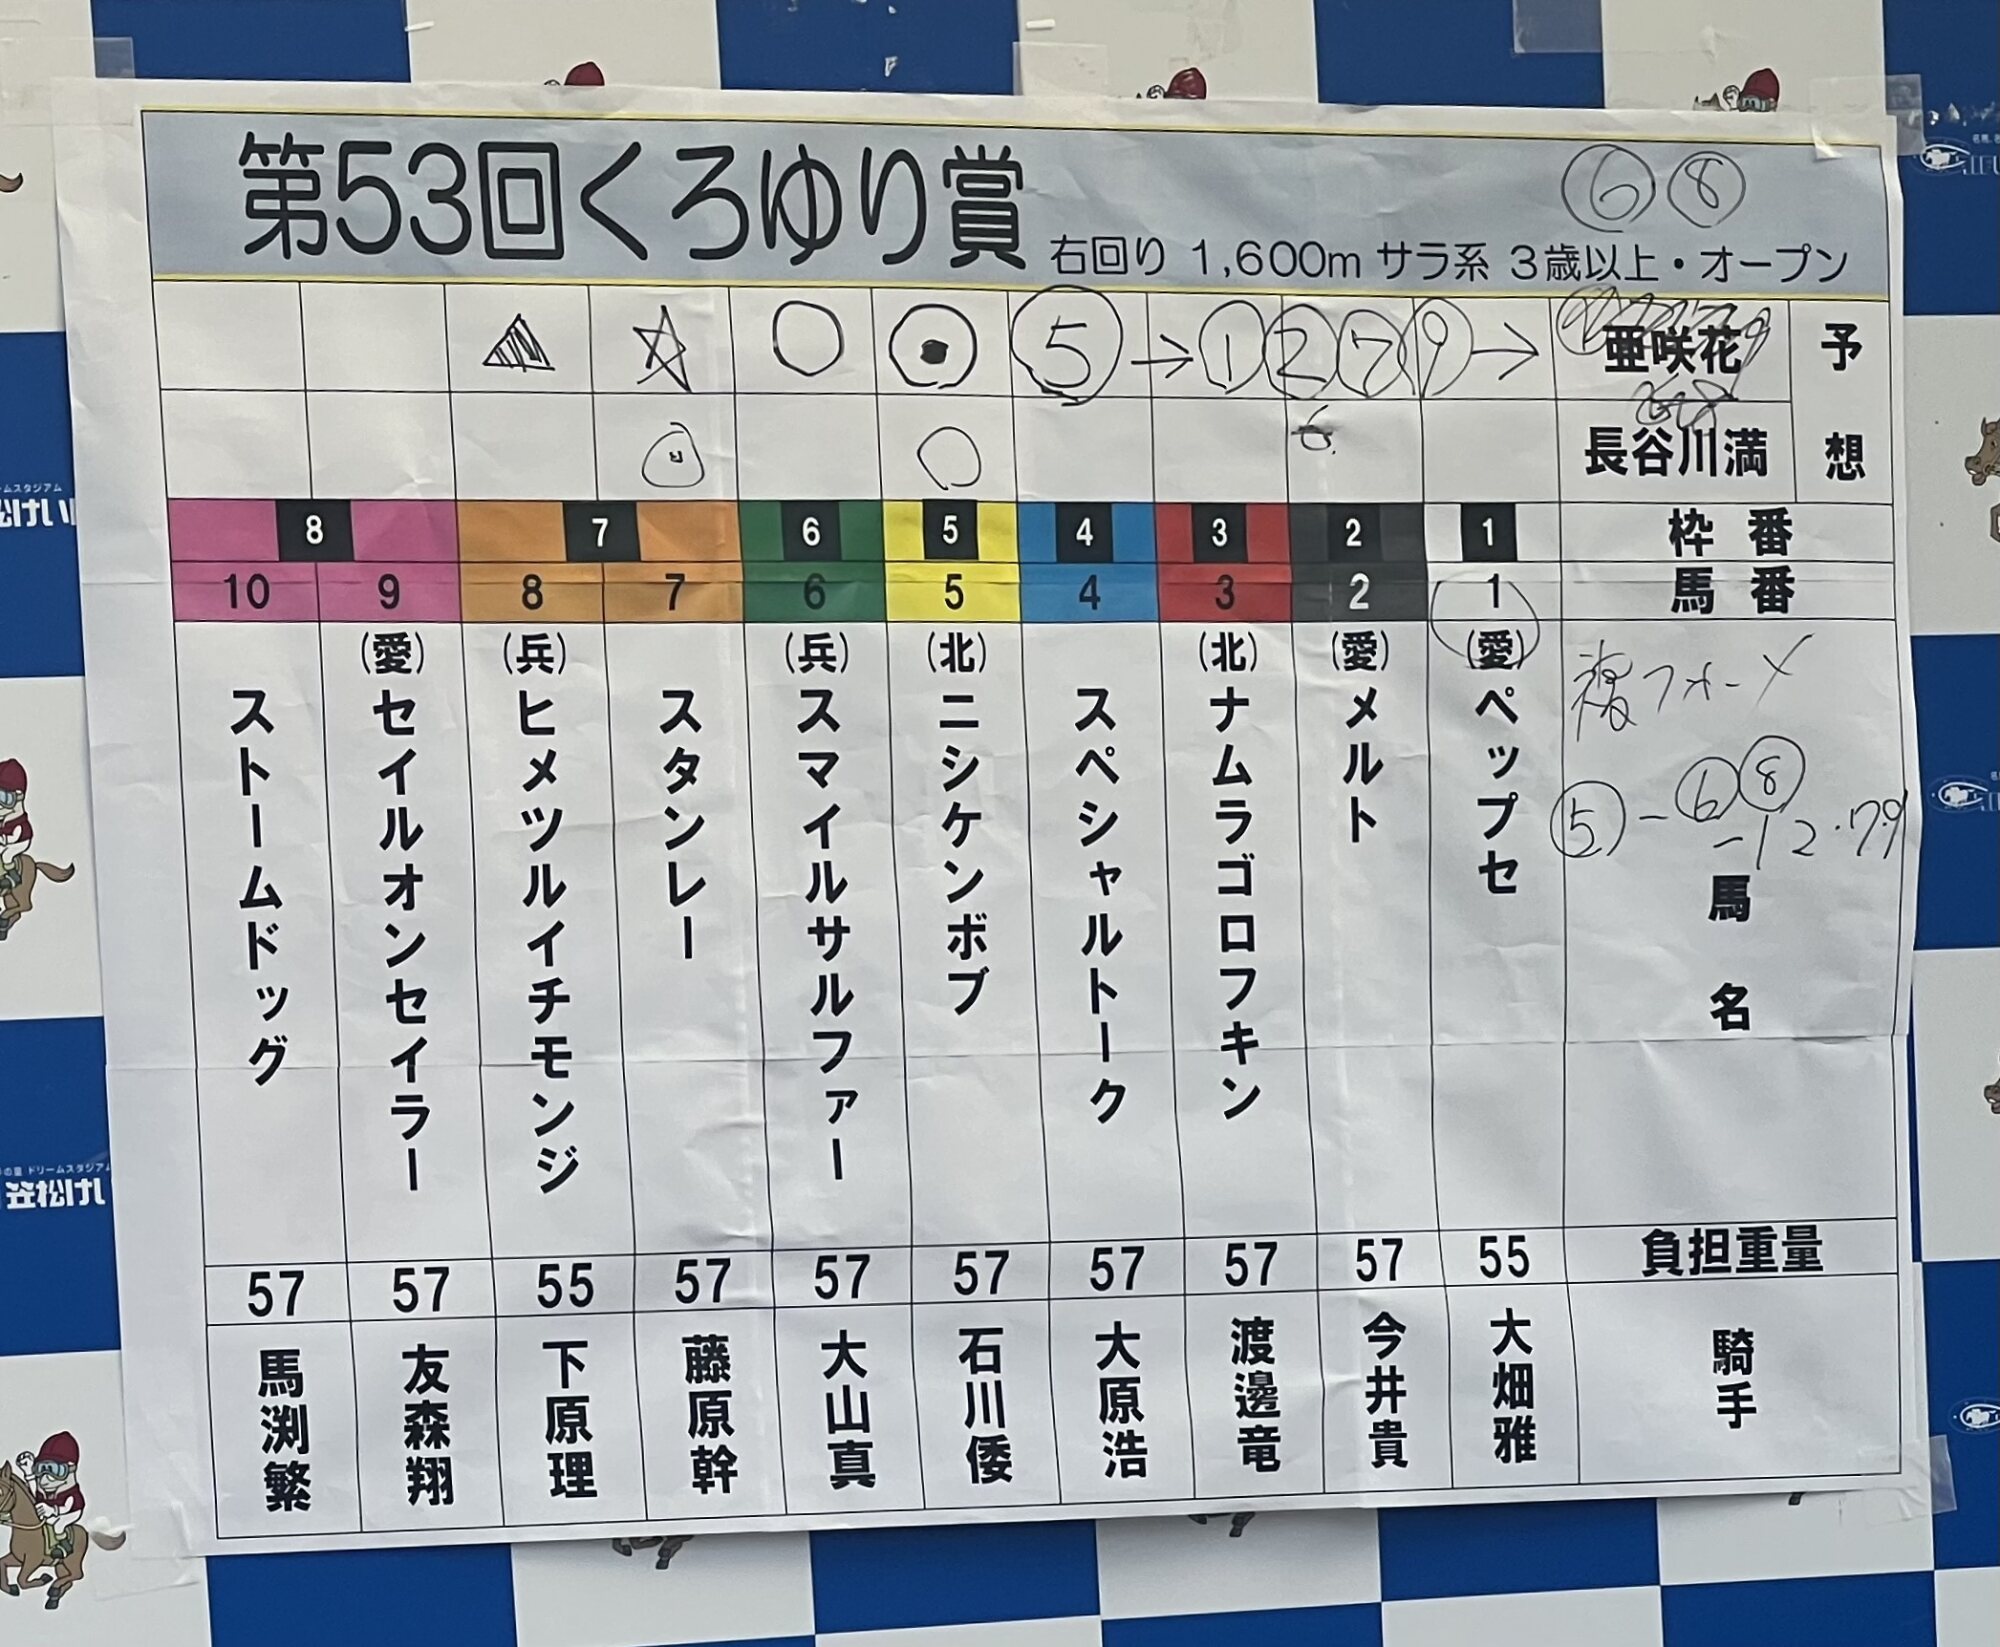 第53回くろゆり賞
右回り 1,600m サラ系 3歳以上・オープン
⑥⑧
予想
亜咲花
⑤→①②⑦⑨→
長谷川満
6
枠番
1
2
3
4
5
6
7
8
馬番
1
2
3
4
5
6
7
8
9
10
複フォーメ
⑤-⑥⑧
-12・79
馬名
(愛)ペップセ
(愛)メルト
(北)ナムラゴロフキン
スペシャルトーク
(北)ニシケンボブ
(兵)スマイルサルファー
スタンレー
(兵)ヒメツルイチモンジ
(愛)セイルオンセイラー
ストームドッグ
負担重量
55
57
57
57
57
57
57
55
57
57
騎手
大畑雅
今井貴
渡邊竜
大原浩
石川倭
大山真
藤原幹
下原理
友森翔
馬渕繁
笠松けい
ドリームスタジアム